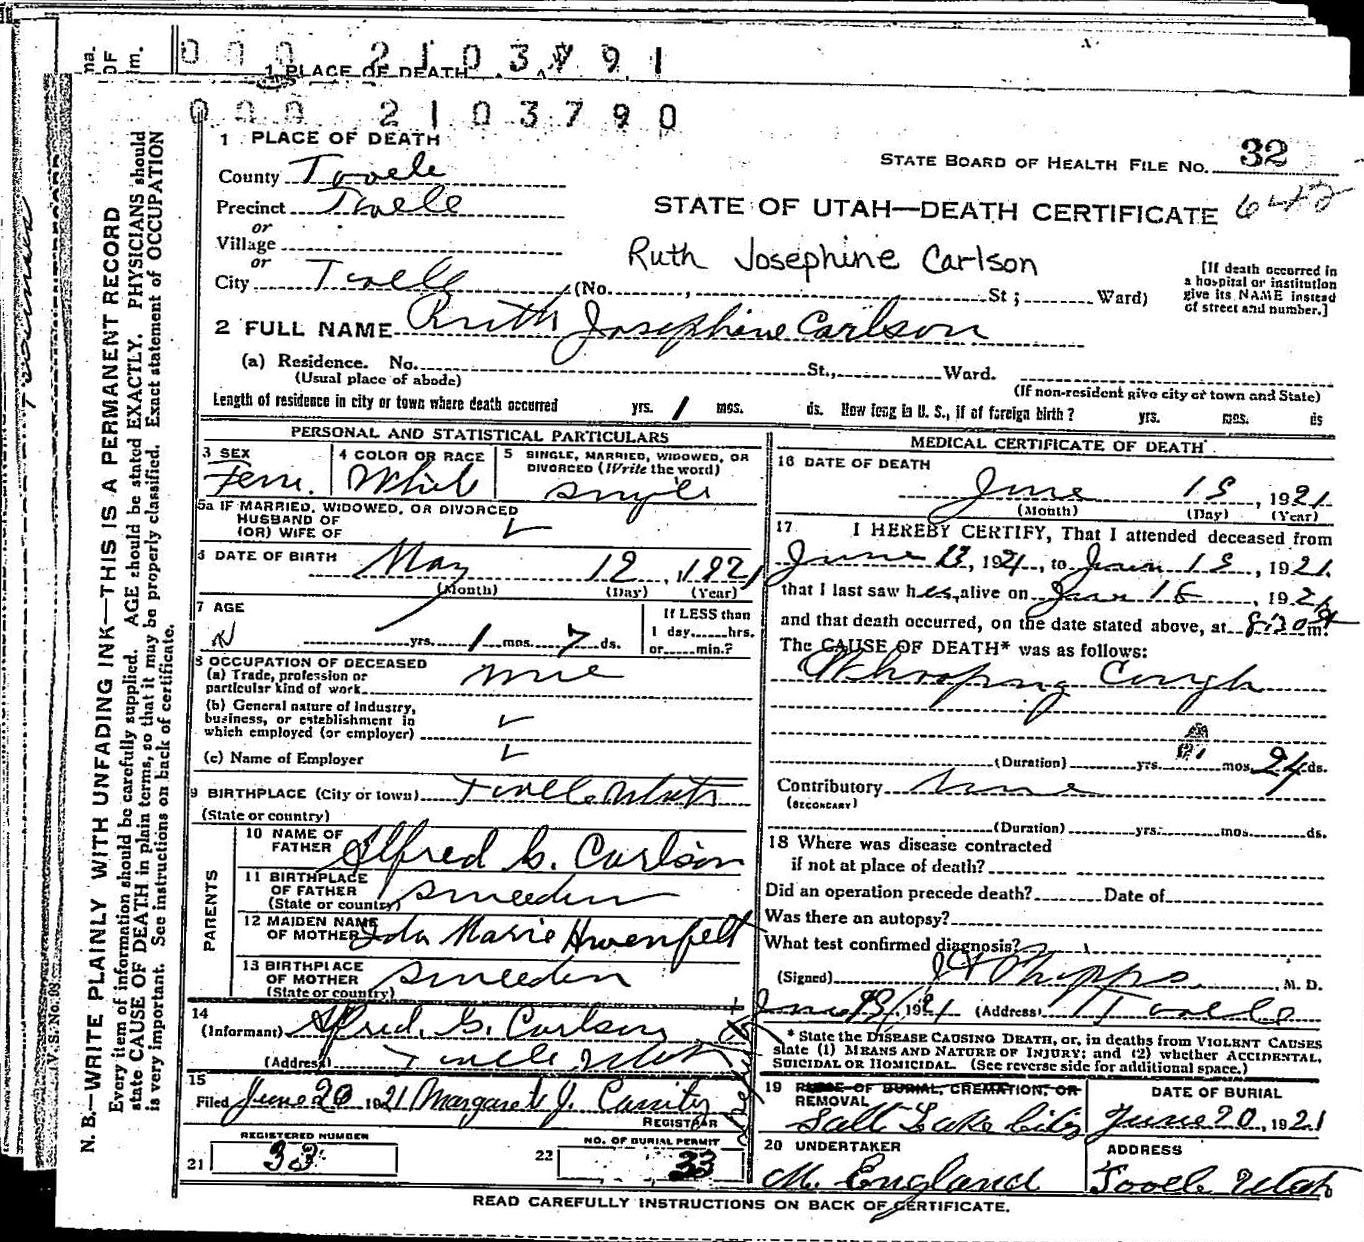 ma.
OF
m.
000 2103791
1 PLACE OF DEATH
000 2103790
1 PLACE OF DEATH
STATE BOARD OF HEALTH FILE NO. 32
County Tooele
642
Precinct Tooele
STATE OF UTAH—DEATH CERTIFICATE
or
Village
Ruth Josephine Carlson
or
City Tooele (No. , St ; Ward)
[If death occurred in
a hospital or institution
give its NAME instead
of street and number.]
2 FULL NAME Ruth Josephine Carlson
(a) Residence. No. St., Ward.
(Usual place of abode) (If non-resident give city or town and State)
Length of residence in city or town where death occurred yrs. 1 mos. ds. How long in U. S., if of foreign birth? yrs. mos. ds
PERSONAL AND STATISTICAL PARTICULARS
3 SEX
Fem.
4 COLOR OR RACE
White
5 SINGLE, MARRIED, WIDOWED, OR
DIVORCED (Write the word)
Single
5a IF MARRIED, WIDOWED, OR DIVORCED
HUSBAND OF
(OR) WIFE OF
6 DATE OF BIRTH
May 12, 1921
(Month) (Day) (Year)
7 AGE
yrs. 1 mos. 7 ds.
If LESS than
1 day hrs.
or min.?
8 OCCUPATION OF DECEASED
(a) Trade, profession or
particular kind of work none
(b) General nature of industry,
business, or establishment in
which employed (or employer)
(c) Name of Employer
9 BIRTHPLACE (City or town) Tooele Utah
(State or country)
PARENTS
10 NAME OF
FATHER Alfred G. Carlson
11 BIRTHPLACE
OF FATHER
(State or country) Sweeden
12 MAIDEN NAME
OF MOTHER Ida Marie
13 BIRTHPLACE
OF MOTHER
(State or country) Sweeden
14
(Informant) Alfred. G. Carlson
(Address) Tooele Utah
15
Filed June 20 1921 Margaret J. Cassity
REGISTRAR
REGISTERED NUMBER
21 33
NO. OF BURIAL PERMIT
22 33
MEDICAL CERTIFICATE OF DEATH
16 DATE OF DEATH
June 19, 1921
(Month) (Day) (Year)
17 I HEREBY CERTIFY, That I attended deceased from
June 13, 1921, to June 19, 1921.
that I last saw her alive on June 18, 1921,
and that death occurred, on the date stated above, at 8:30 m.
The CAUSE OF DEATH* was as follows:
Whooping Cough
(Duration) yrs. mos. 24 ds.
Contributory None
(SECONDARY)
(Duration) yrs. mos. ds.
18 Where was disease contracted
if not at place of death?
Did an operation precede death? Date of
Was there an autopsy?
What test confirmed diagnosis?
(Signed) J A Phipps, M. D.
June 19, 1921 (Address) Tooele
* State the DISEASE CAUSING DEATH, or, in deaths from VIOLENT CAUSES
state (1) MEANS AND NATURE OF INJURY; and (2) whether ACCIDENTAL,
SUICIDAL OR HOMICIDAL. (See reverse side for additional space.)
19 PLACE OF BURIAL, CREMATION, OR
REMOVAL
Salt Lake City
DATE OF BURIAL
June 20, 1921
20 UNDERTAKER
M. England
ADDRESS
Tooele Utah
READ CAREFULLY INSTRUCTIONS ON BACK OF CERTIFICATE.
V. S. No.
N. B.—WRITE PLAINLY WITH UNFADING INK—THIS IS A PERMANENT RECORD
Every item of information should be carefully supplied. AGE should be stated EXACTLY. PHYSICIANS should
state CAUSE OF DEATH in plain terms, so that it may be properly classified. Exact statement of OCCUPATION
is very important. See instructions on back of certificate.